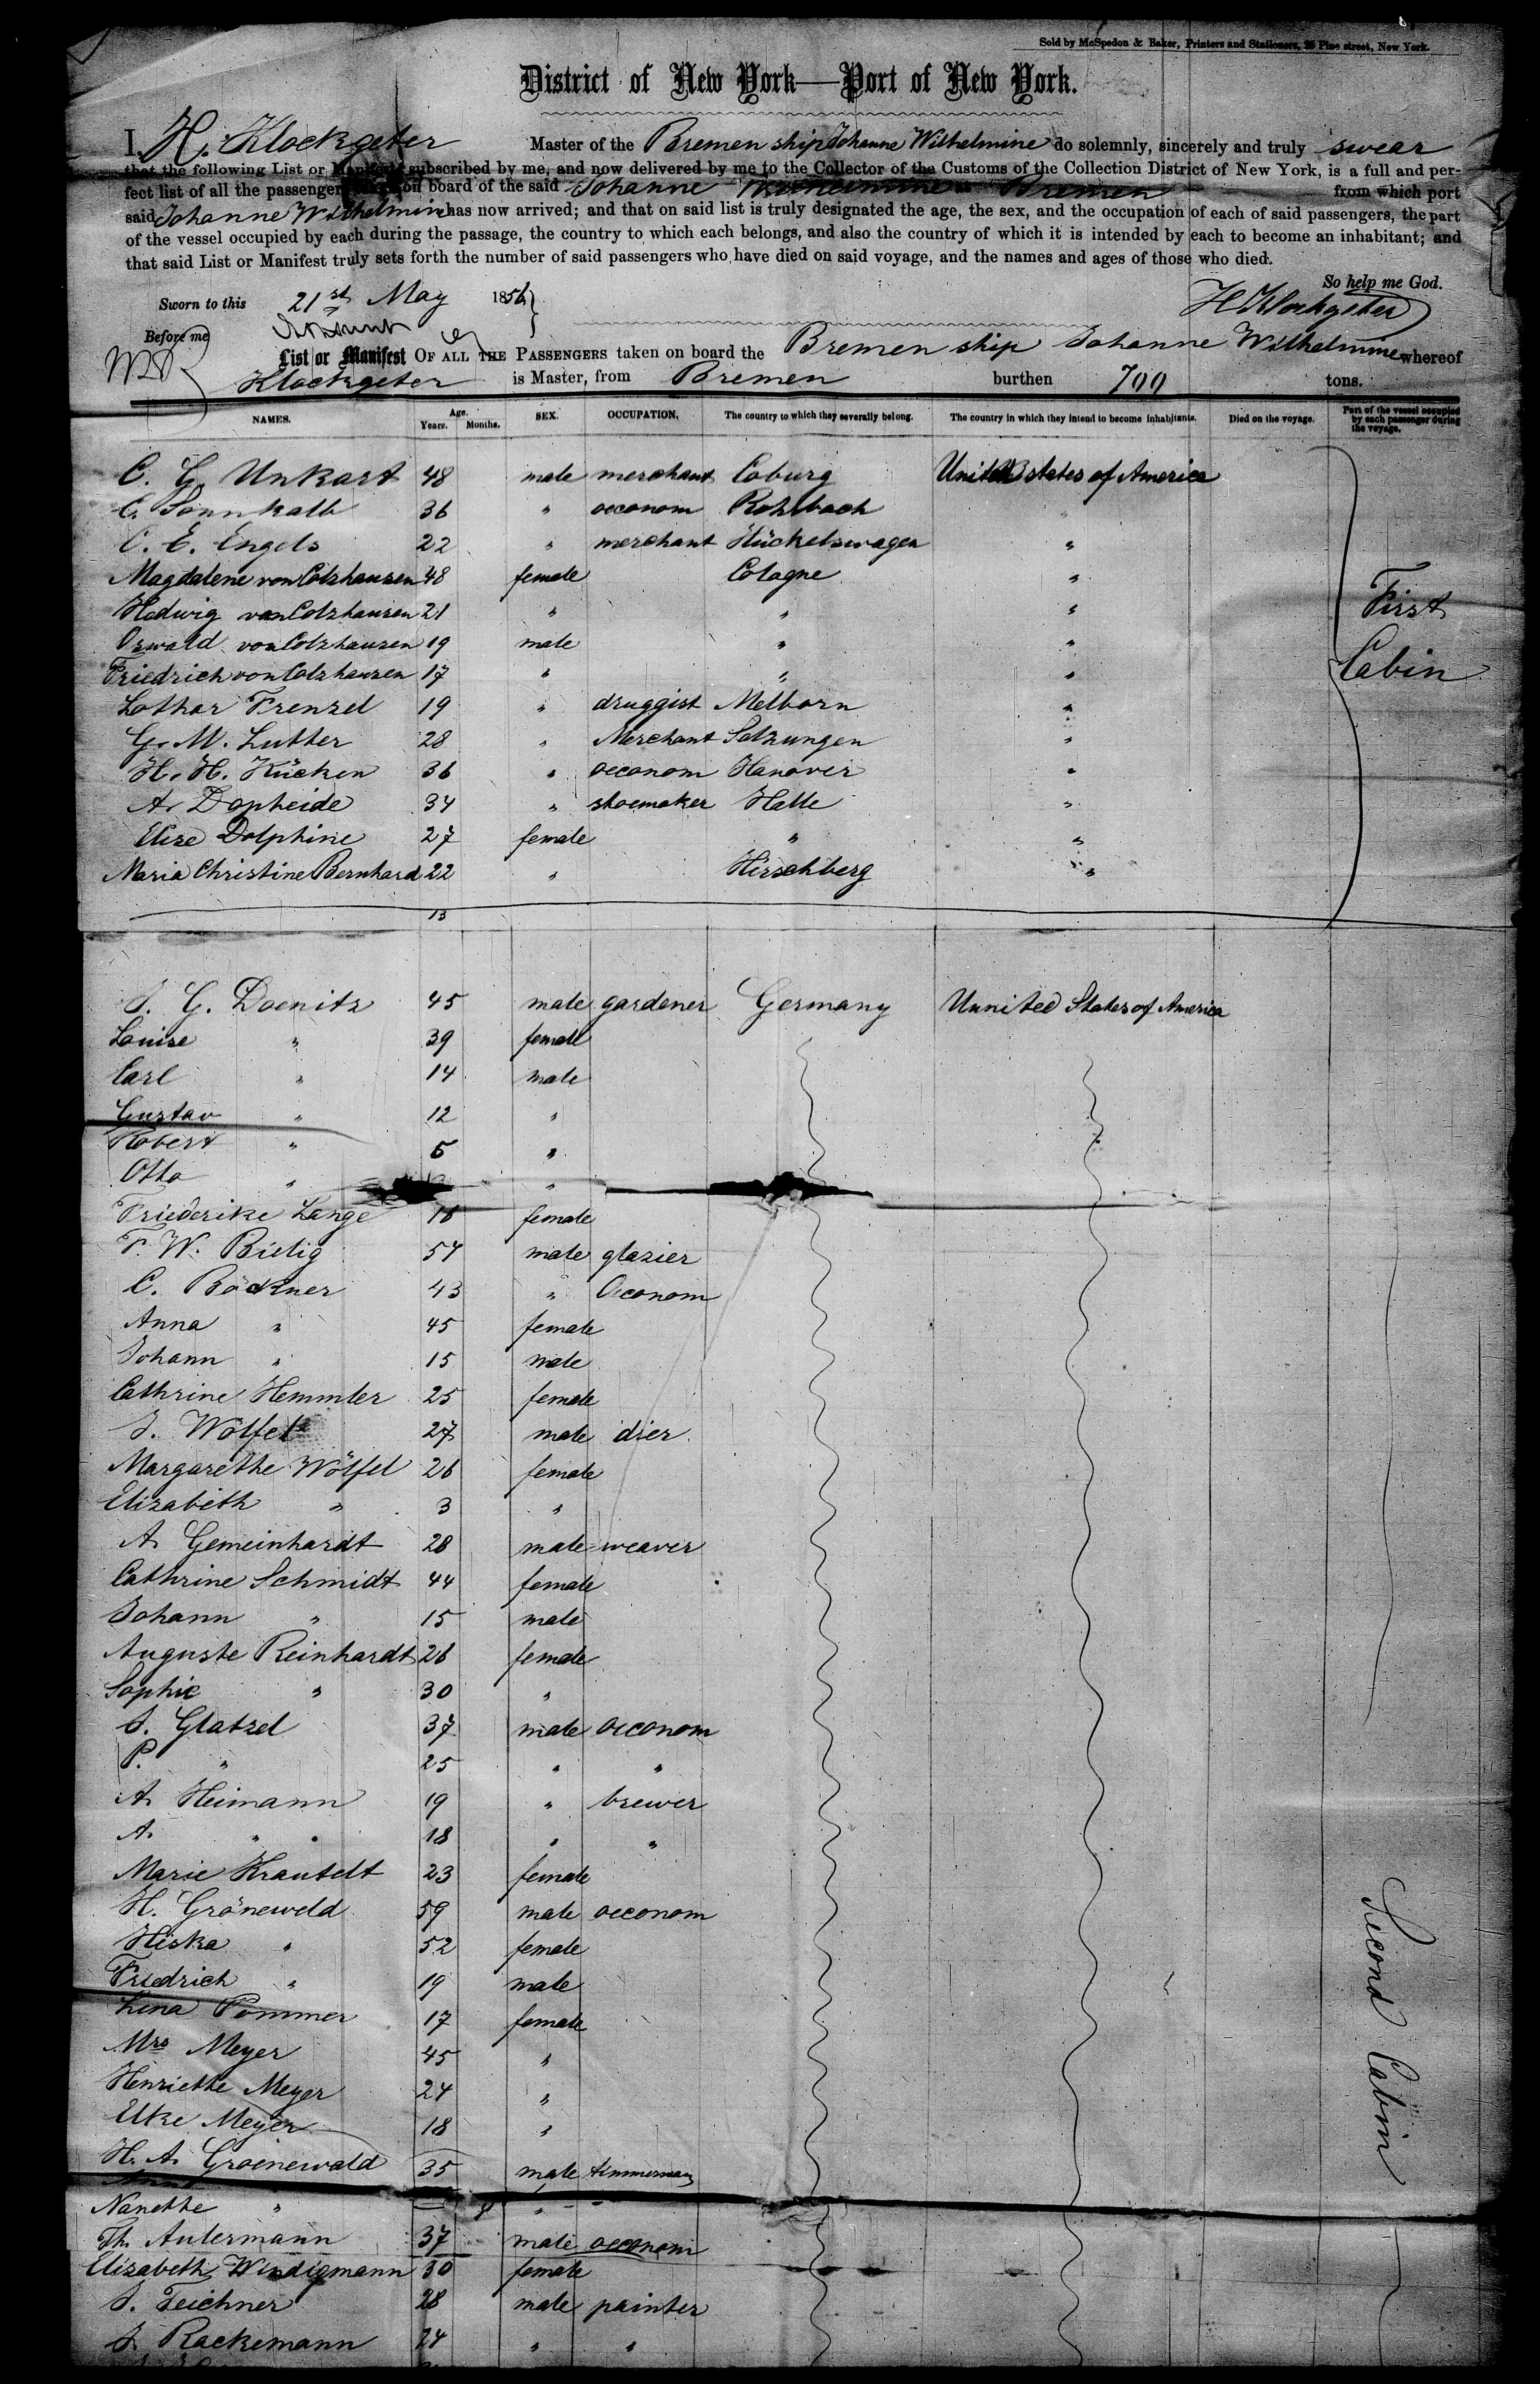 Sold by McSpedon & Baker, Printers and Stationers, 25 Pine street, New York.
District of New York—Port of New York.
I, H. Klockgeter Master of the Bremen ship Johanne Wilhelmine do solemnly, sincerely and truly swear
that the following List or Manifest subscribed by me, and now delivered by me to the Collector of the Customs of the Collection District of New York, is a full and per-
fect list of all the passengers on board of the said Johanne Wilhelmine Bremen from which port
said Johanne Wilhelmine has now arrived; and that on said list is truly designated the age, the sex, and the occupation of each of said passengers, the part
of the vessel occupied by each during the passage, the country to which each belongs, and also the country of which it is intended by each to become an inhabitant; and
that said List or Manifest truly sets forth the number of said passengers who have died on said voyage, and the names and ages of those who died.
So help me God.
Sworn to this 21st May 1856 H Klockgeter
Before me
List or Manifest OF ALL THE PASSENGERS taken on board the Bremen ship Johanne Wilhelmine whereof
Klockgeter is Master, from Bremen burthen 700 tons.
NAMES. Age. Years. Months. SEX. OCCUPATION. The country to which they severally belong. The country in which they intend to become inhabitants. Died on the voyage. Part of the vessel occupied by each passenger during the voyage.
C. G. Unkart 48 male merchant Coburg United states of America
C. Sonnkalb 36 " oeconom Rohrbach
C. E. Engels 22 " merchant Hückelswagen "
Magdalene von Colzhausen 48 female Cologne "
Hedwig von Colzhausen 21 " " "
Oswald von Colzhausen 19 male " "
Friedrich von Colzhausen 17 " " "
First Cabin
Lothar Frenzel 19 " druggist Melborn "
G. M. Lutter 28 " Merchant Salzungen "
H. H. Kücken 36 " oeconom Hanover "
A. Dopheide 34 " shoemaker Halle "
Elise Dolphine 27 female " "
Maria Christine Bernhard 22 " Hirschberg "
13
J. G. Doenitz 45 male gardener Germany Uunited States of America
Louise " 39 female
Carl " 14 male
Gustav " 12 "
Robert " 5 "
Otto " "
Friederike Lange 18 female
F. W. Bielig 54 male glazier
C. Böckner 43 " Oeconom
Anna " 45 female
Johann " 15 male
Cathrine Hemmler 25 female
J. Wölfel 27 male dier
Margarethe Wölfel 26 female
Elizabeth " 3 "
A. Gemeinhardt 28 male weaver
Cathrine Schmidt 44 female
Johann " 15 male
Auguste Reinhardt 26 female
Sophie " 30 "
J. Glatzel 37 male oeconom
P. " 25 " "
A. Heimann 19 " brewer
A. " 18 " "
Marie Krautelt 23 female
H. Gröneweld 59 male oeconom
Hiska " 52 female
Friedrich " 19 male
Lina Pommer 17 female
Mrs Meyer 45 "
Henriette Meyer 24 "
Elke Meyer 18 "
Second Cabin
H. A. Groenewald 35 male timmerman
Nanette "
Th. Aulermann 37 male oeconom
Elizabeth Windigmann 30 female
J. Teichner 28 male painter
J. Rackemann 24 " "